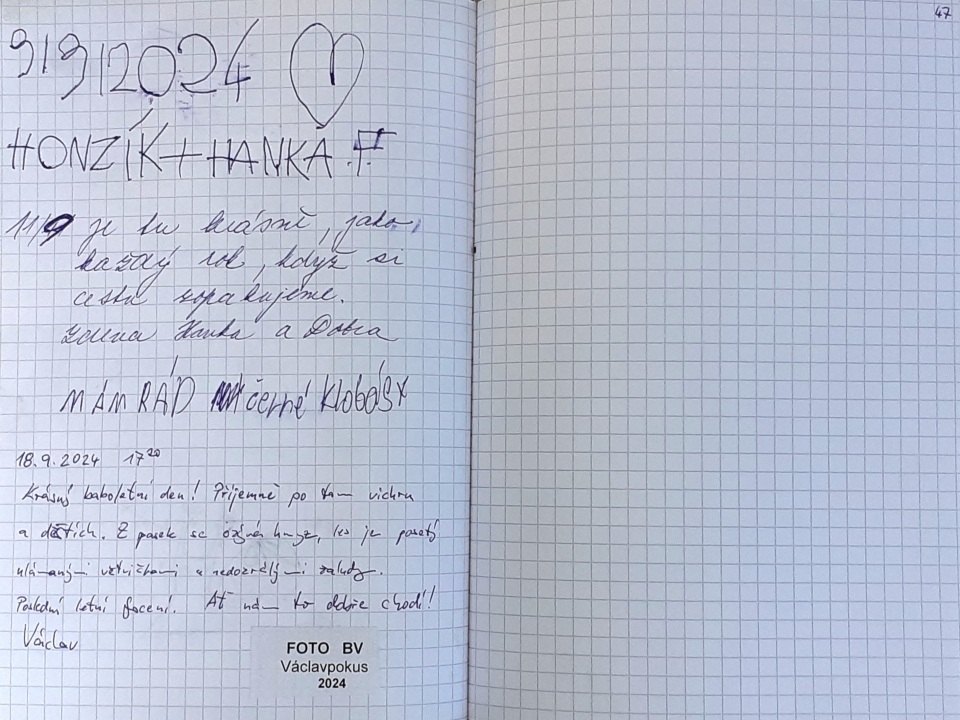 9/9/2024
HONZÍK + HANKA F.
11/9 je tu krásně, jako
každý rok, když si
cestu zopakujeme.
Zdena Hanka a Dobra
MÁM RÁD černé KlobÁSY
18.9.2024 17²⁰
Krásný baboletní den! Příjemně po tom vichru
a deštích. Z pasek se ozývá hmyz, les je posetý
ulámanými větvičkami a nedozrálými žaludy.
Poslední letní focení. Ať nám to dobře chodí!
Václav
FOTO BV
Václavpokus
2024
47